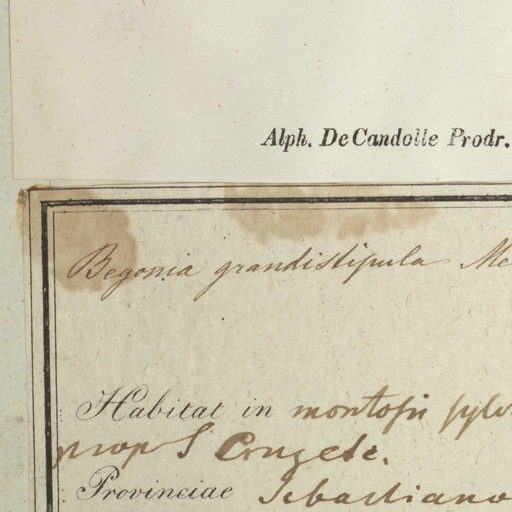 Alph. DeCandolle Prodr.
Begonia grandistipula
Habitat in montosis sylv
prop S Cruz etc.
Provinciae Sebastiano